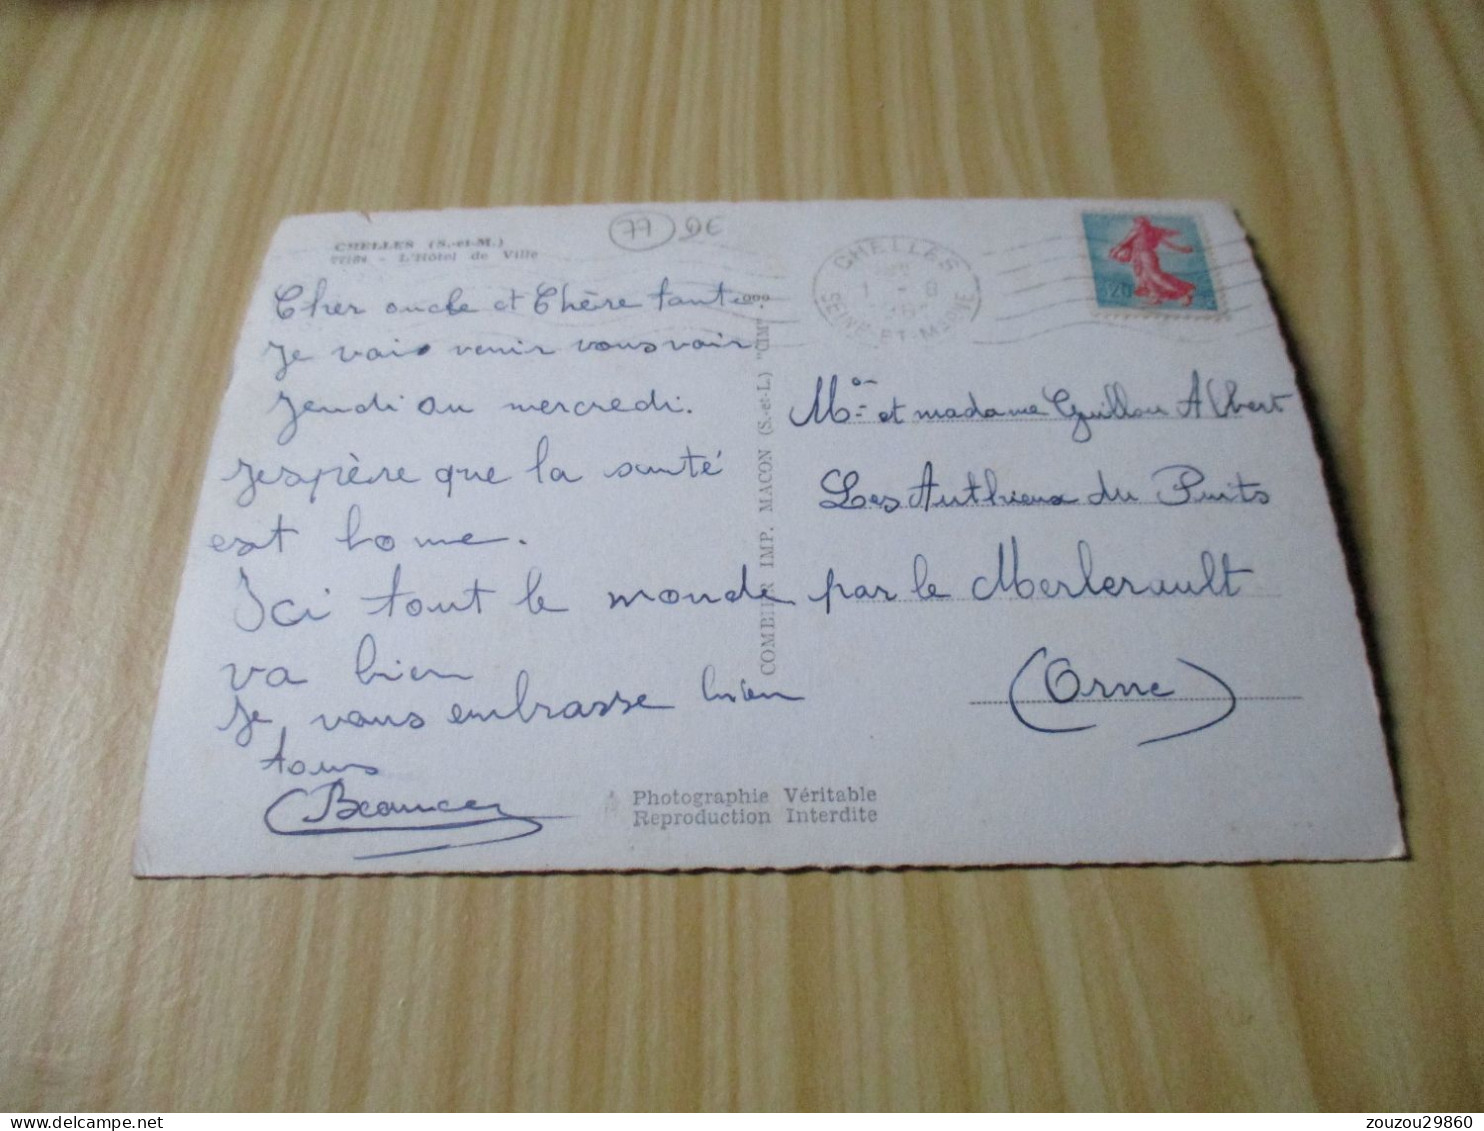 CHELLES (S.-et-M.)
L'Hôtel de Ville
77 2€
Cher oncle et Chère tante.
Je vais venir vous voir
Jeudi ou mercredi.
Jespère que la santé
est bonne.
Ici tout le monde
va bien
Je vous embrasse bien
tous
COMBIER IMP. MACON (S.-et-L.) "CIM"
CHELLES
1 - 8
SEINE-ET-MARNE
0,20
Mr et madame Guillou Albert
Les Authieux du Puits
par le Merlerault
(Orne)
Photographie Véritable
Reproduction Interdite
zouzou29860
delcampe.net